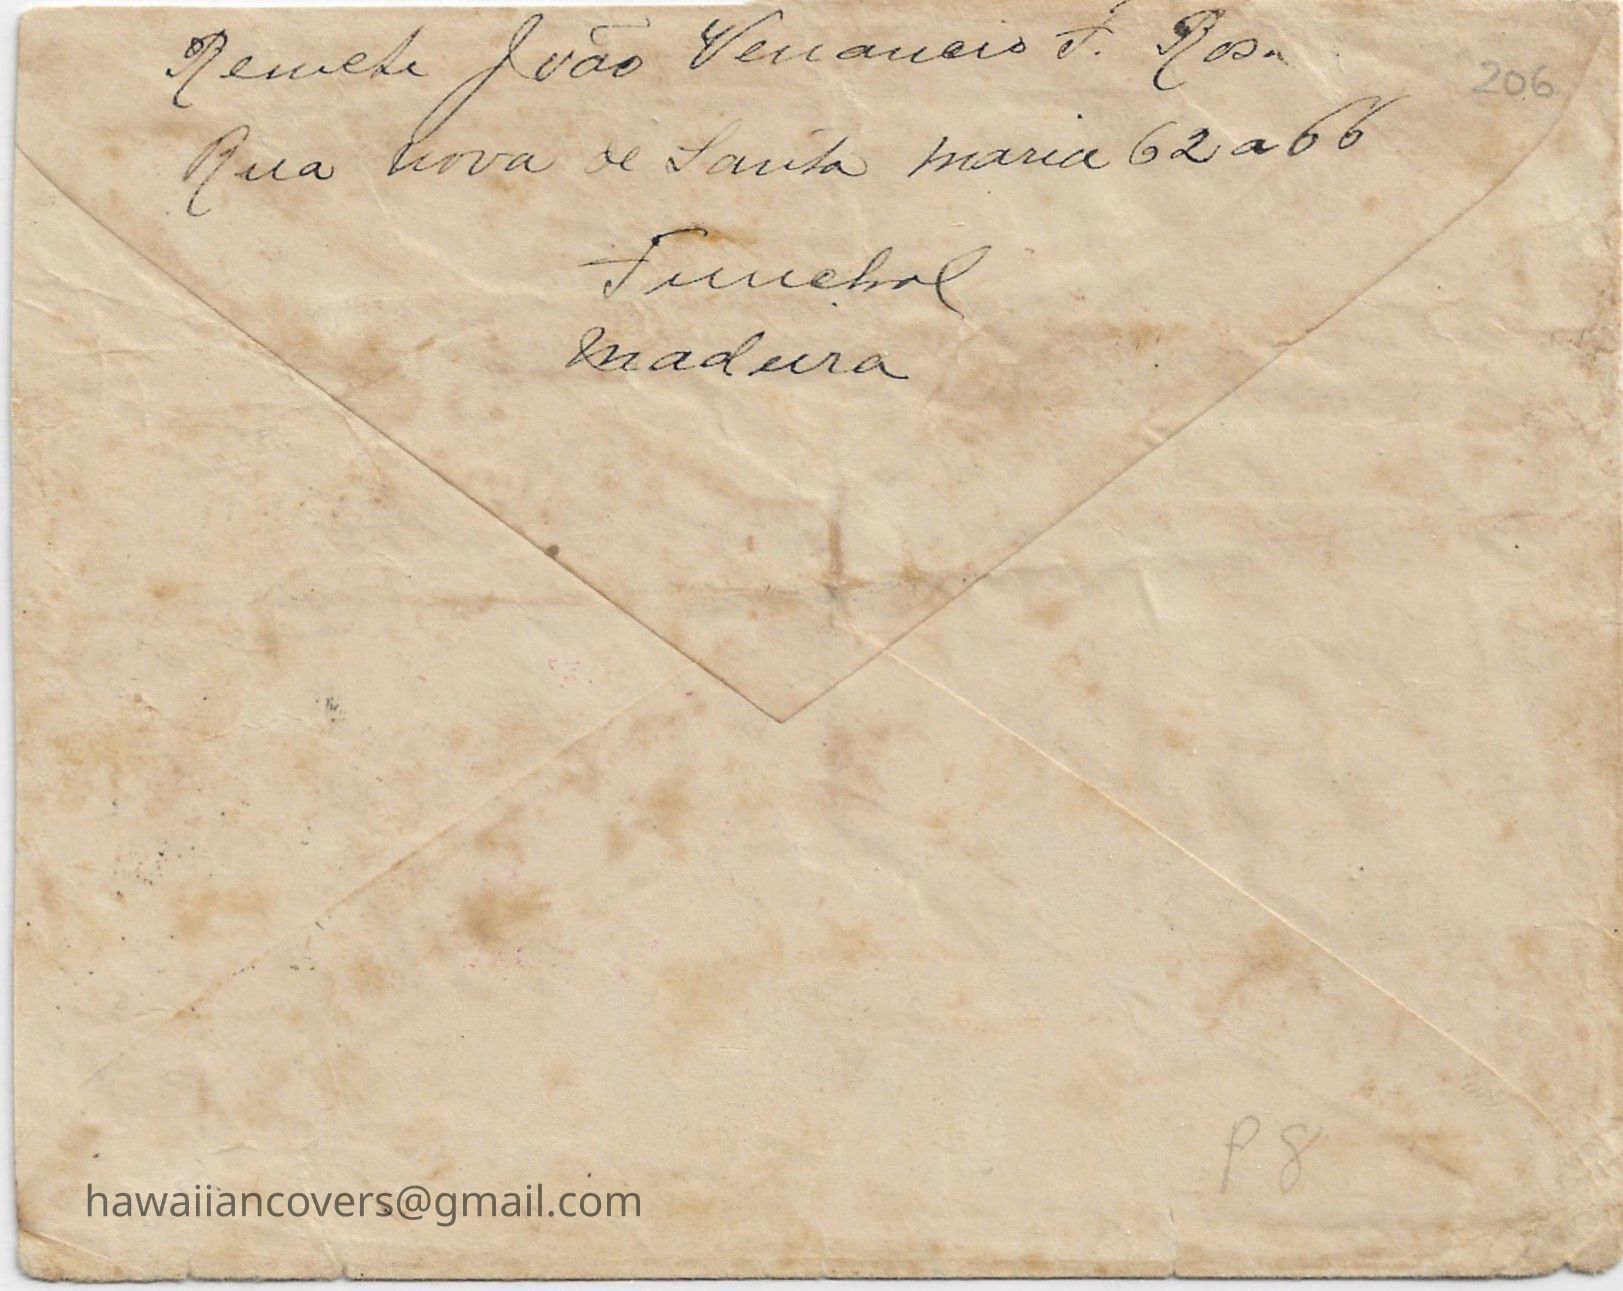 Remete João Venancio F. Rosa
206
Rua nova de Santa maria 62 a 66
Funchal
Madeira
P 8
hawaiiancovers@gmail.com